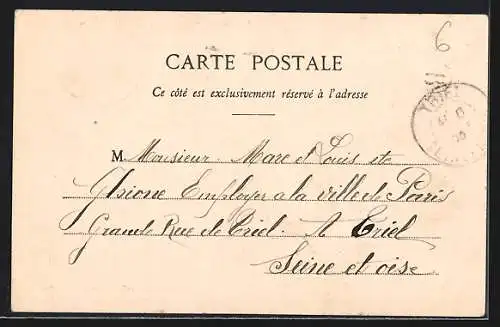 6
CARTE POSTALE
Ce côté est exclusivement réservé à l'adresse
M. Monsieur Marc et Louis
Employer a la ville de Paris
Grande Rue de Triel. A Triel
Seine et oise
TRIEL